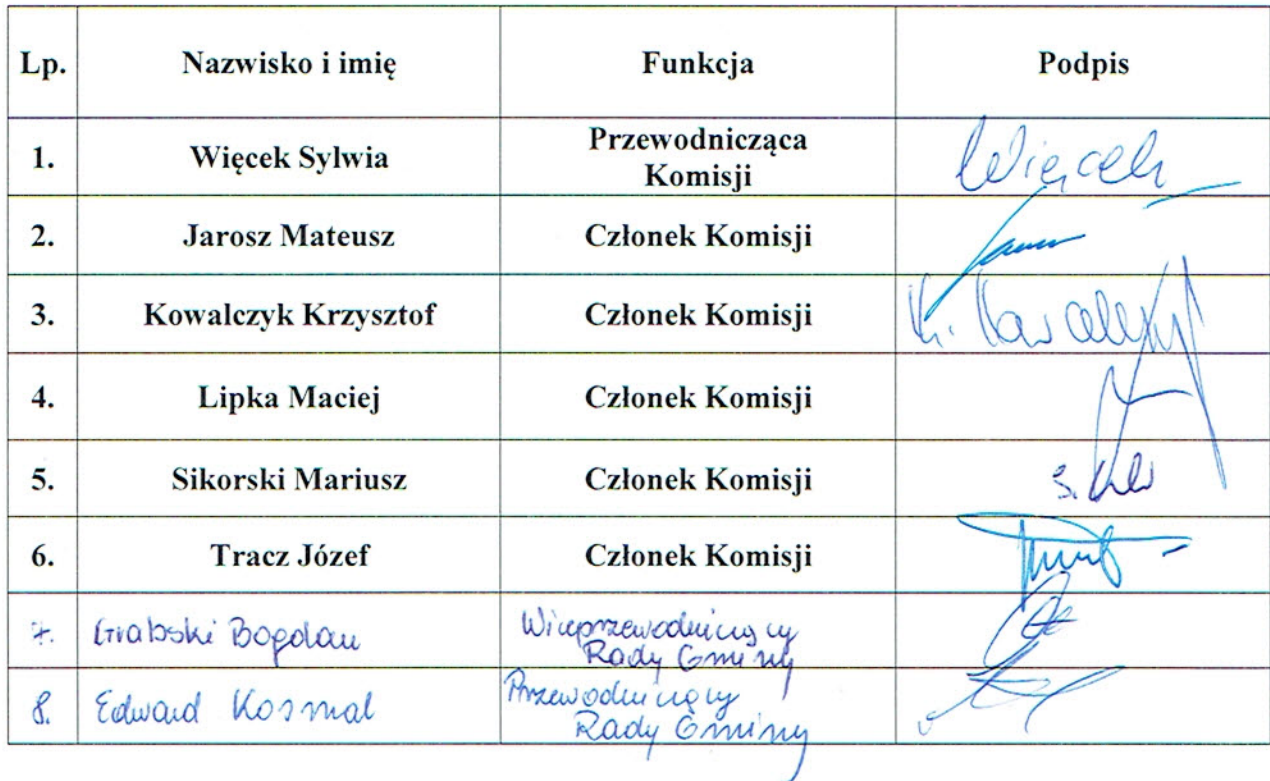 Lp. Nazwisko i imię Funkcja Podpis
1. Więcek Sylwia Przewodnicząca Komisji Więcek
2. Jarosz Mateusz Członek Komisji
3. Kowalczyk Krzysztof Członek Komisji K. Kowalczyk
4. Lipka Maciej Członek Komisji
5. Sikorski Mariusz Członek Komisji
6. Tracz Józef Członek Komisji
7. Grabski Bogdan Wiceprzewodniczący
Rady Gminy
8. Edward Kosmal Przewodniczący
Rady Gminy